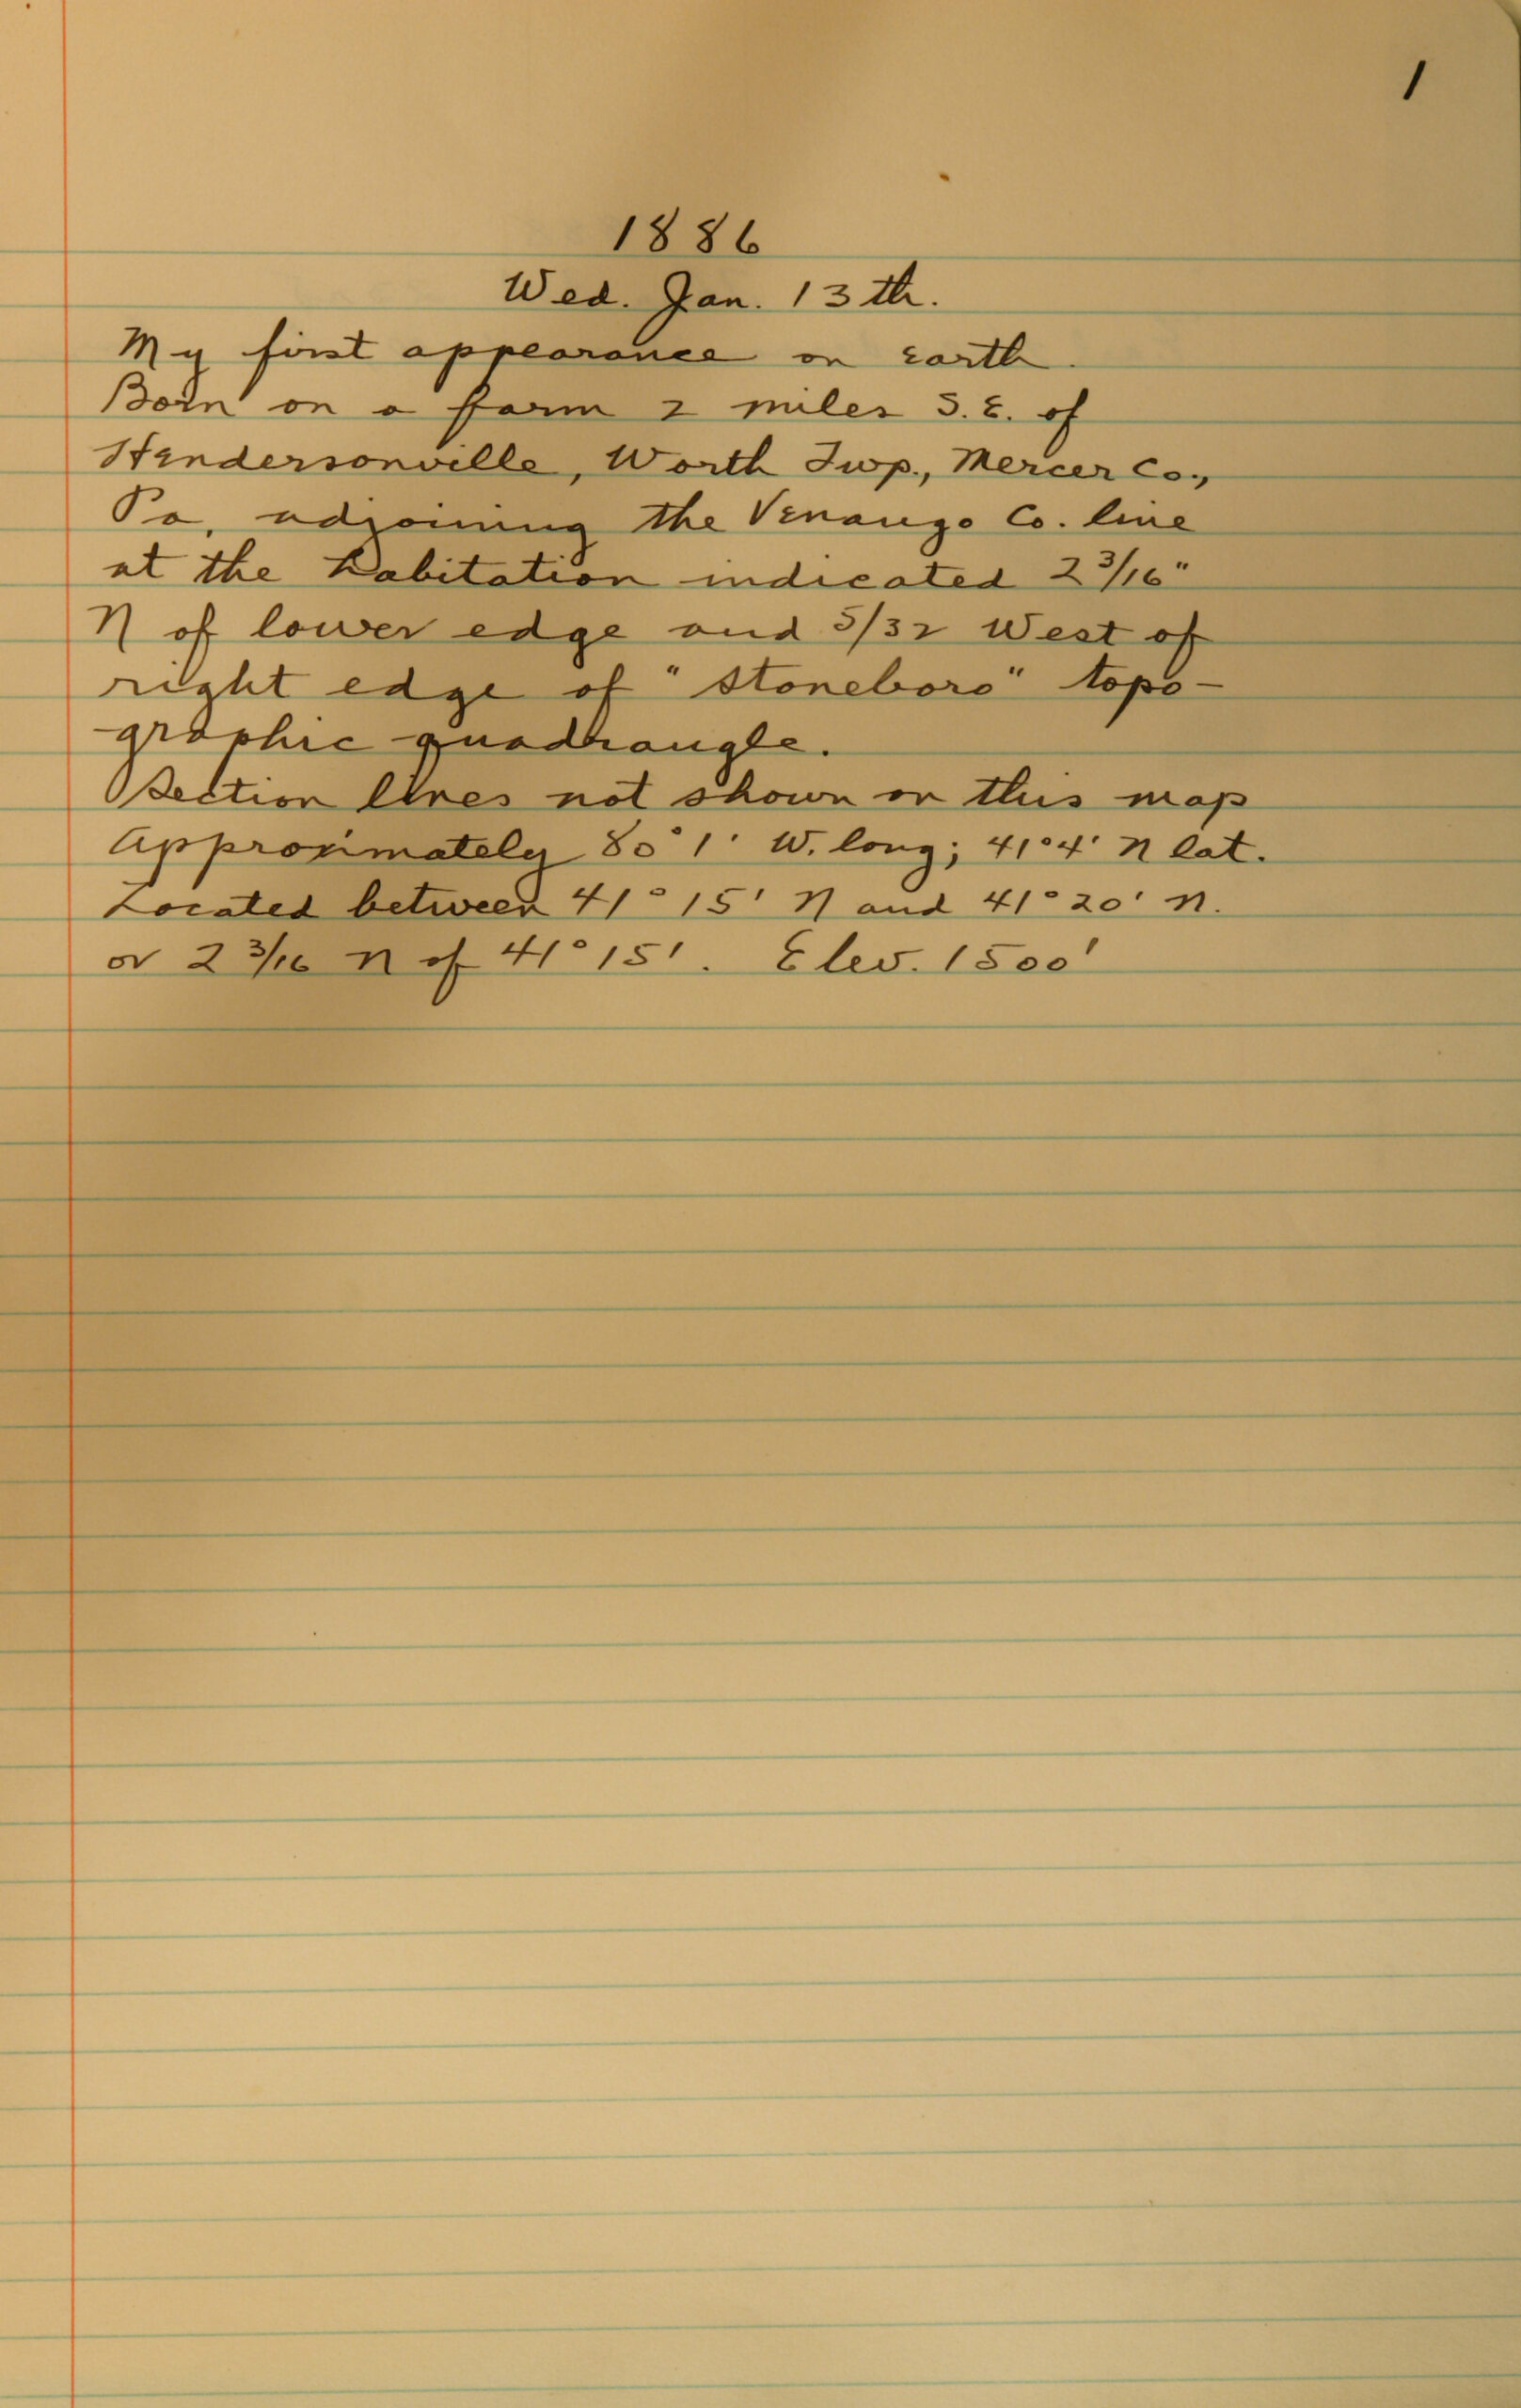 1
1886
Wed. Jan. 13th.
My first appearance on earth.
Born on a farm 2 miles S.E. of
Hendersonville, Worth Twp., Mercer Co.,
Pa, adjoining the Venango Co. line
at the habitation indicated 2 3/16"
N of lower edge and 5/32 West of
right edge of "Stoneboro" topo-
graphic quadrangle.
Section lines not shown on this map
Approximately 80° 1' W. long; 41° 4' N lat.
Located between 41° 15' N and 41° 20' N.
or 2 3/16 N of 41° 15'. Elev. 1500'